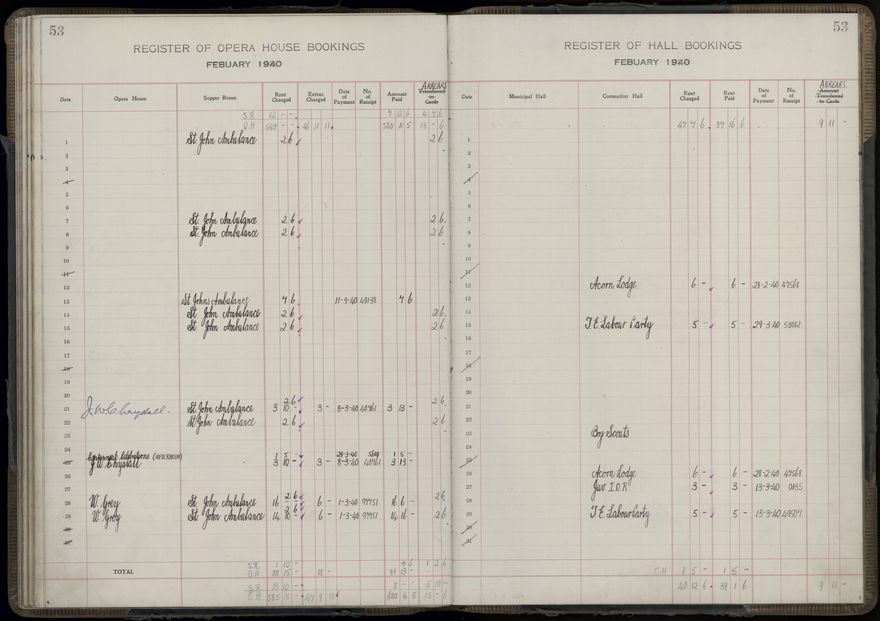 53
REGISTER OF OPERA HOUSE BOOKINGS
FEBUARY 1940
Date Opera House Supper Room Rent Charged Extras Charged Date of Payment No. of Receipt Amount Paid ARREARS Transferred to Cards
S.R. 12 - -
O.H.
1 St. John Ambulance 2 6 2 6
2
3
4
5
6
7 St. John Ambulance 2 6 2 6
8 St. John Ambulance 2 6 2 6
9
10
11
12
13 St Johns Ambulance 4 6 11-3-40 49138 4 6
14 St. John Ambulance 2 6 2 6
15 St. John Ambulance 2 6 2 6
16
17
18
19
20 2 6 2 6
21 St. John Ambulance 3 10 - 3 - 8-3-40 48961 3 13 -
22 St. John Ambulance 2 6 2 6
23
24 Centennial Celebrations (AFTERNOON) 1 5 - 29-3-40 1 5 -
25 J. W. Chrystall 3 10 - 3 - 8-3-40 48961 3 13 -
26
27
28 W. Grey St. John Ambulance 2 6 16 - - 6 - 1-3-40 99951 16 6 - 2 6
29 W. Grey St. John Ambulance 2 6 14 10 - 6 - 1-3-40 99951 14 16 - 2 6
30
31
TOTAL
S.R. 1 10 - 4 6 1 2 6
O.H. 38 15 - 18 - 39 13 -
S.R. 13 10 -
O.H.
53
REGISTER OF HALL BOOKINGS
FEBUARY 1940
Date Municipal Hall Coronation Hall Rent Charged Rent Paid Date of Payment No. of Receipt ARREARS Amount Transferred to Cards
47 7 6 37 16 6 9 11 -
1
2
3
4
5
6
7
8
9
10
11
12 Acorn Lodge 6 - 6 - 28-2-40 47568
13
14
15 T.E. Labour Party 5 - 5 - 29-3-40
16
17
18
19
20
21
22
23 Boy Scouts
24
25
26 Acorn Lodge 6 - 6 - 28-2-40 47568
27 Juv. I.O.R. 3 - 3 - 13-3-40 0135
28
29 T.E. Labour Party 5 - 5 - 13-3-40 49507
30
31
C.H. 1 5 - 1 5 -
48 12 6 39 1 6 9 11 -